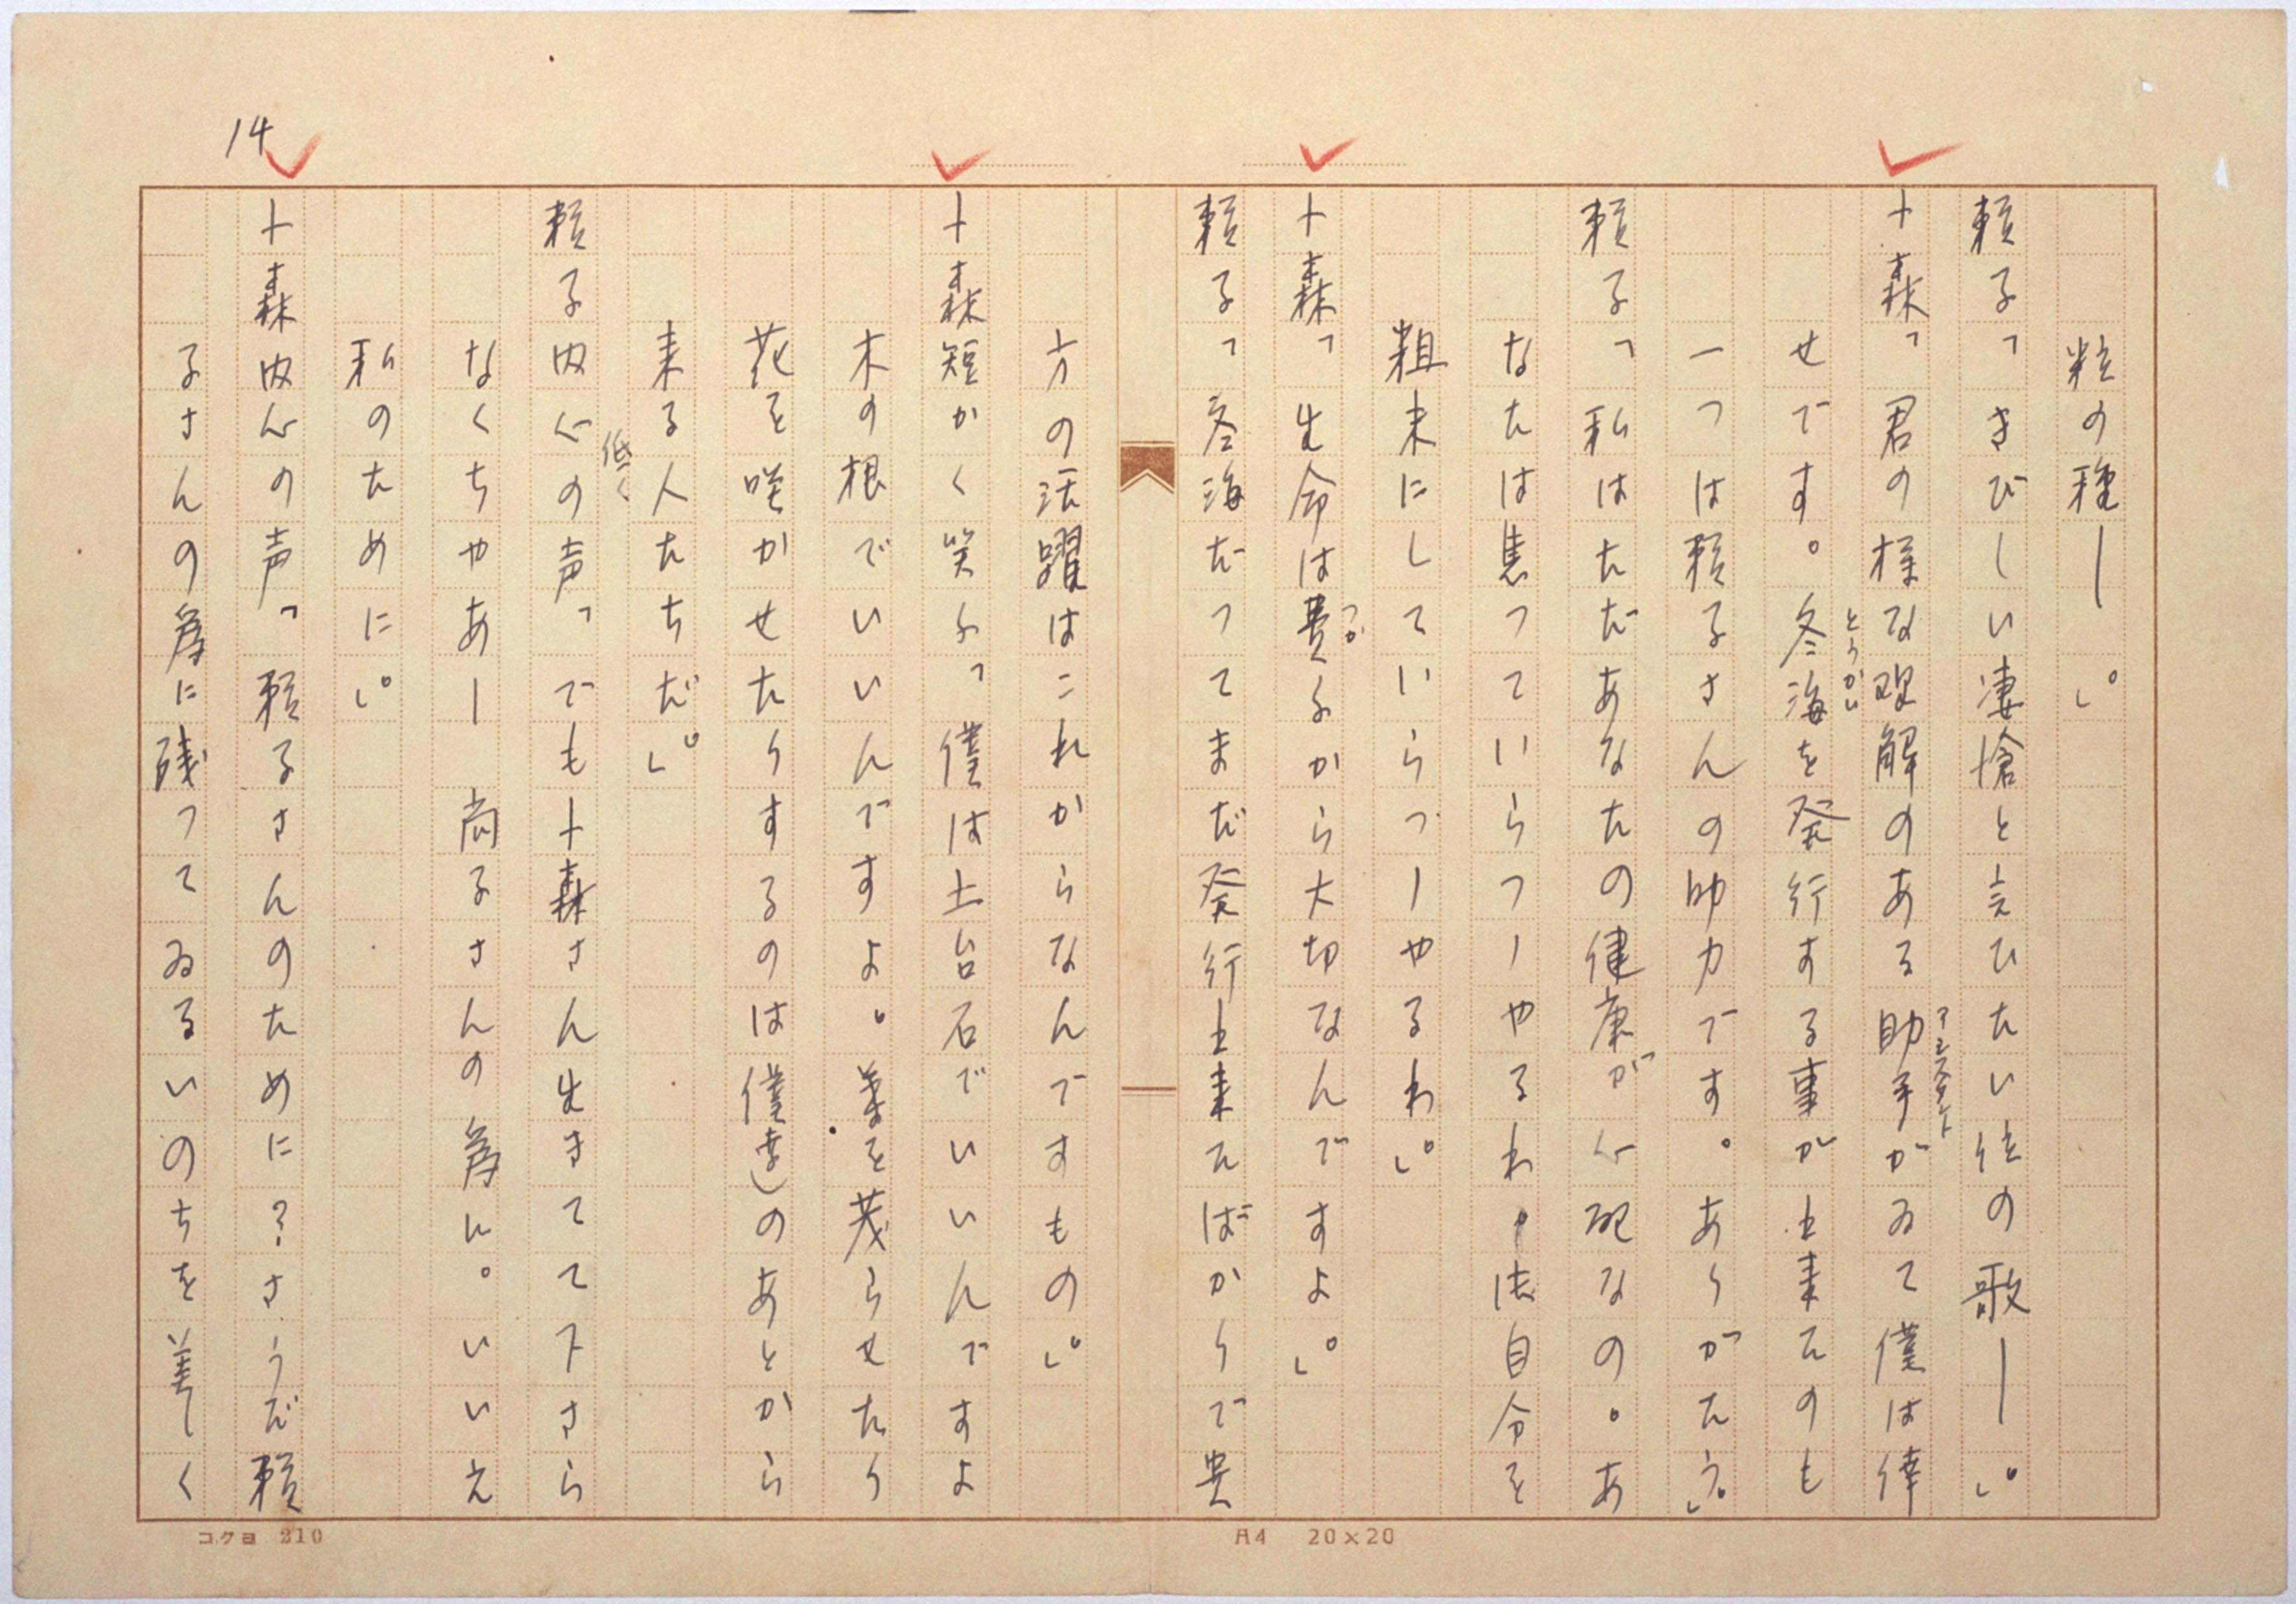 粒の種ー」。
頼子「さびしい凄愴と言ひたい位の歌ー」。
十森「君の様な理解のある助手がゐて僕は倖
アシスタント
せです。冬海を発行する事が出来たのも
とうかい
一つは頼子さんの助力です。ありがたう」。
頼子「私はただあなたの健康が心配なの。あ
なたは焦っていらっーやるわー自分を
粗末にしていらっーやるわ」。
十森「生命は費ふから大切なんですよ。」
つか
頼子「冬海だってまだ発行出来たばかりで貴
方の活躍はこれからなんですもの」。
十森短かく笑ふ「僕は土台石でいいんですよ
木の根でいいんですよ。葉を茂らせたり
花を咲かせたりするのは僕(達)のあとから
来る人たちだ」。
低く
頼子内心の声「でも十森さん生きてて下さら
なくちゃあー 尚子さんの為に。いいえ
私のために」。
十森内心の声「頼子さんのために?さうだ頼
子さんの為に残ってゐるいのちを美しく
14
コクヨ 210
A4 20×20